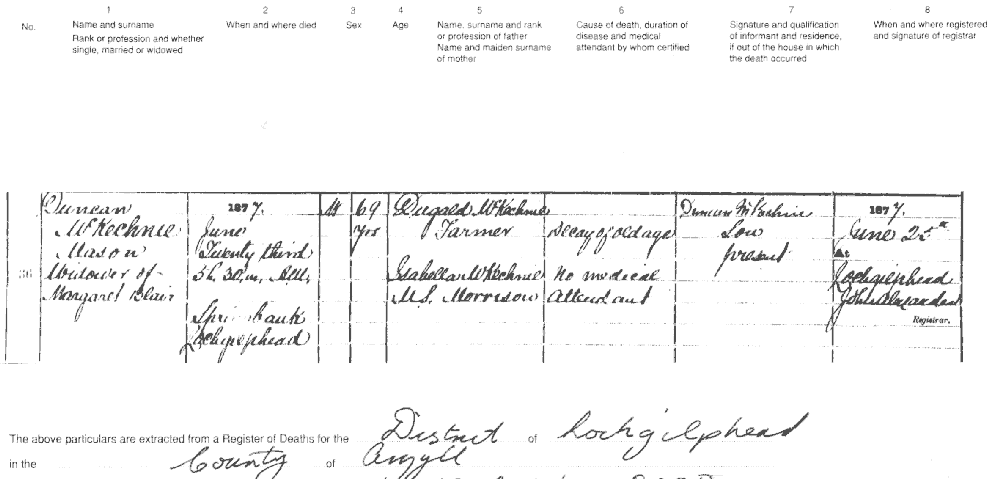 1 2 3 4 5 6 7 8
No. Name and surname When and where died Sex Age Name, surname and rank Cause of death, duration of Signature and qualification When and where registered
Rank or profession and whether or profession of father disease and medical of informant and residence, and signature of registrar
single, married or widowed Name and maiden surname attendant by whom certified if out of the house in which
of mother the death occurred
Duncan 1877. M 69 Dugald McKechnie Duncan McKechnie 1877.
McKechnie June yrs Farmer Decay of old age Son June 25th
Mason Twenty third present At
36 Widower of 5h. 30m. A.M. Isabella McKechnie No medical Lochgilphead
Margaret Blair M.S. Morrison attendant John
bank Registrar.
Lochgilphead
The above particulars are extracted from a Register of Deaths for the District of Lochgilphead
in the County of Argyll